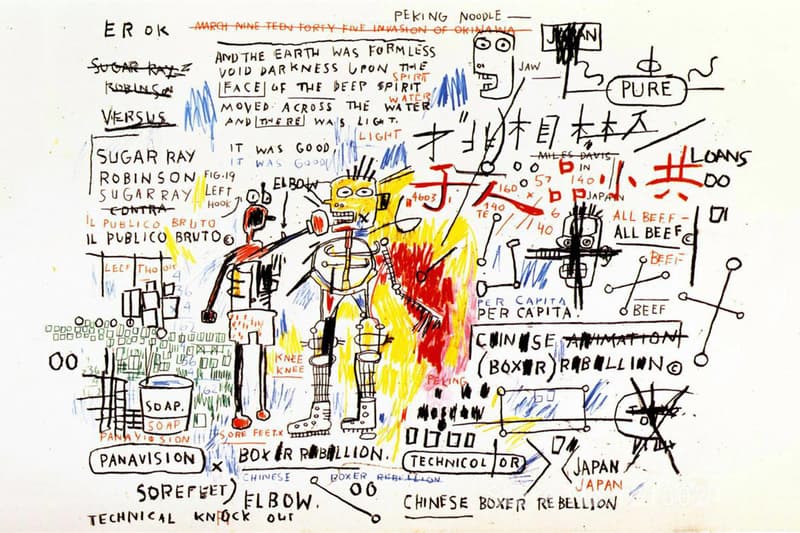 PEKING NOODLE —
EROK
MARCH NINE TEEN FORTY FIVE INVASION OF OKINAWA
JAPAN
AND THE EARTH WAS FORMLESS
VOID DARKNESS UPON THE
SPIRIT
FACE OF THE DEEP SPIRIT
WATER
MOVED ACROSS THE WATER
AND THERE WAS LIGHT.
LIGHT
IT WAS GOOD
IT WAS GOOD
SUGAR RAY
ROBINSON
VERSUS
JAW
PURE
SUGAR RAY
ROBINSON
SUGAR RAY
CONTRA
FIG. 19
LEFT
HOOK
ELBOW
IL PUBLICO BRUTO
IL PUBLICO BRUTO©
MILES DAVIS
IN
JAPAN
LOANS
OO
子人品小共
品
4603
160
57
140
×
6
140
40
TE
ALL BEEF —
ALL BEEF©
BEEF
BEEF
PER CAPITA
PER CAPITA.
CHINESE ANIMATION
(BOXER) REBELLION©
PEKING
KNEE
KNEE
OO
SOAP.
SOAP
PANAVISION
PANAVISION
×
SORE FEET.X
BOXER REBELLION.
CHINESE BOXER REBELLION
TECHNICOLOR
JAPAN
JAPAN
SOREFEET)
ELBOW.
OO
CHINESE BOXER REBELLION
TECHNICAL KNOCK OUT